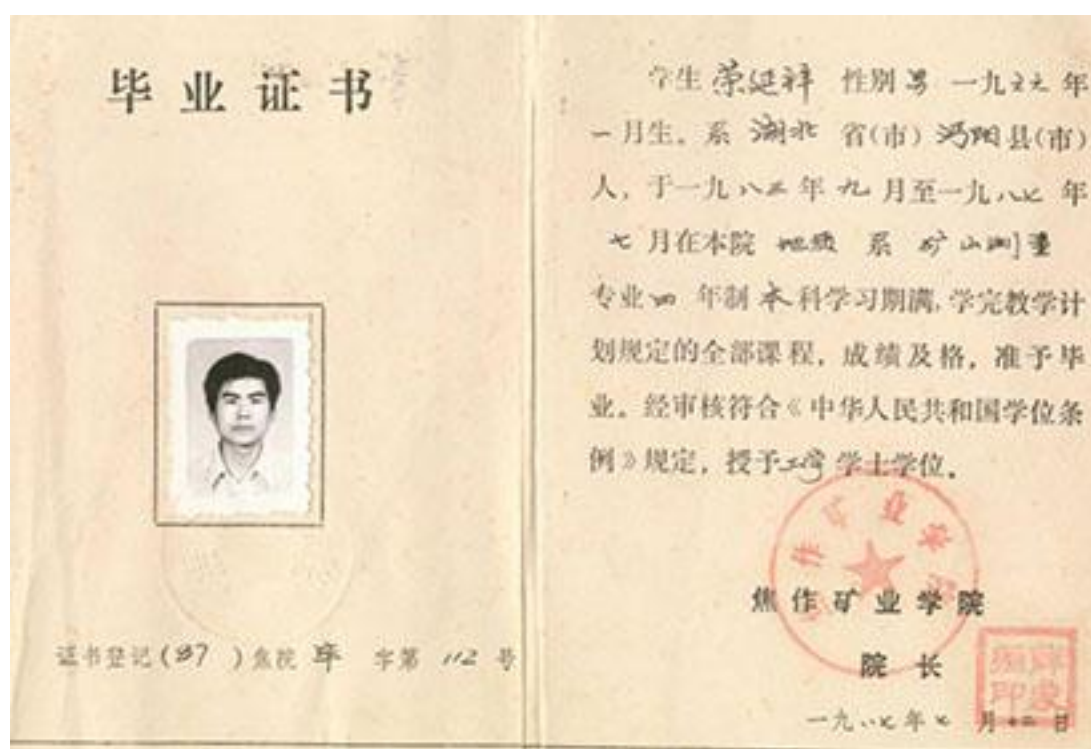 毕业证书
证书登记(87)焦院 毕 字第 112 号
学生 荣延祥 性别 男 一九六六 年
一月生。系 湖北 省(市) 沔阳县(市)
人, 于一九八三年 九 月至一九八七 年
七 月在本院 地质 系 矿山测量
专业 四 年制 本 科学习期满, 学完教学计
划规定的全部课程, 成绩及格, 准予毕
业。经审核符合《中华人民共和国学位条
例》规定, 授予工学 学士学位。
焦作矿业学院
焦作矿业学院
院 长
一九八七年七 月十二日